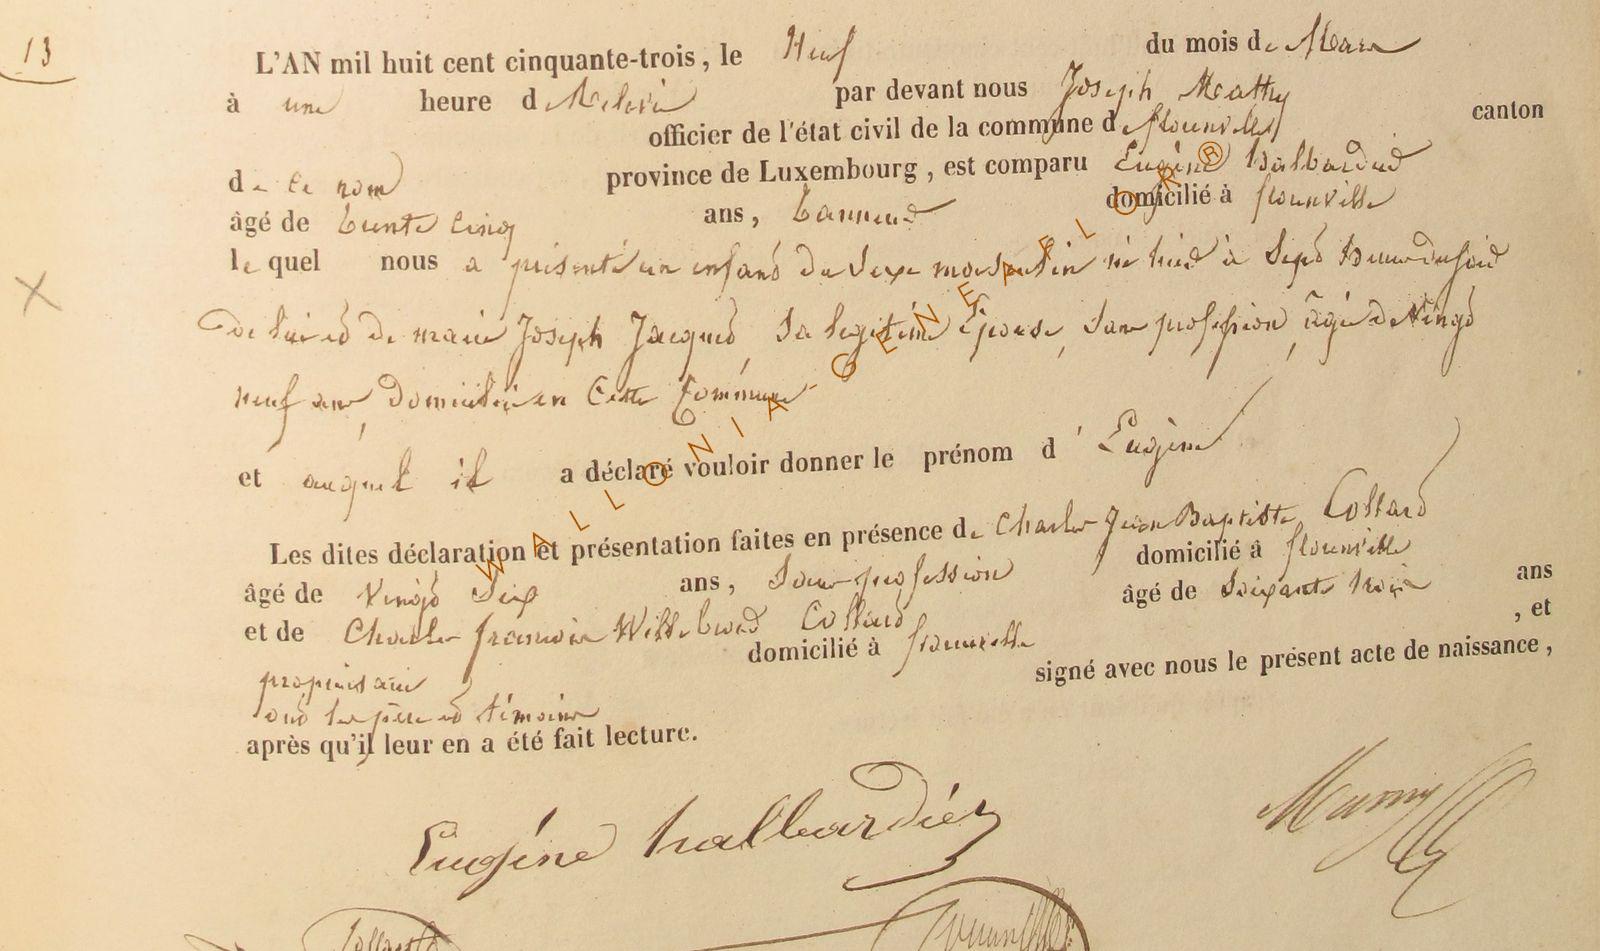 13
L'AN mil huit cent cinquante-trois, le Neuf du mois de Mars
à une heure de Relevée par devant nous Joseph Mathy
officier de l'état civil de la commune de florenville canton
de ce nom province de Luxembourg, est comparu Eugène halbardier
âgé de trente cinq ans, tanneur domicilié à florenville
le quel nous a présenté un enfant du sexe masculin né hier à Sept heures du soir
de lui et de marie Joseph Jacques, Sa legitime Epouse, Sans profession, âgée de Vingt
neuf ans, domiciliée en Cette Commune
et auquel il a déclaré vouloir donner le prénom d' Eugène
Les dites déclaration et présentation faites en présence de Charles Jean Baptiste Collard
âgé de Vingt Six ans, Sans profession domicilié à florenville
et de Charles françois Willebrod Collard âgé de Soixante trois ans
propriétaire domicilié à florenville , et
ont les père et témoins signé avec nous le présent acte de naissance,
après qu'il leur en a été fait lecture.
Eugéne halbardier
WALLONIA - GENEAFELOR®